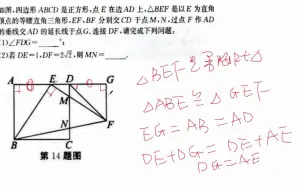 如图,四边形 ABCD 是正方形,点 E 在边 AD 上,△BEF 是以 E 为直角
顶点的等腰直角三角形,EF,BF 分别交 CD 于点 M,N,过点 F 作 AD
的垂线交 AD 的延长线于点 G,连接 DF,请完成下列问题:
(1)∠FDG=____°;
(2)若 DE=1,DF=2√2,则 MN=____.
A E D G
M
N
B C F
第 14 题图
△BEF
△ABE≌△GEF
EG=AB=AD
DE+DG=DE+AE
DG=AE